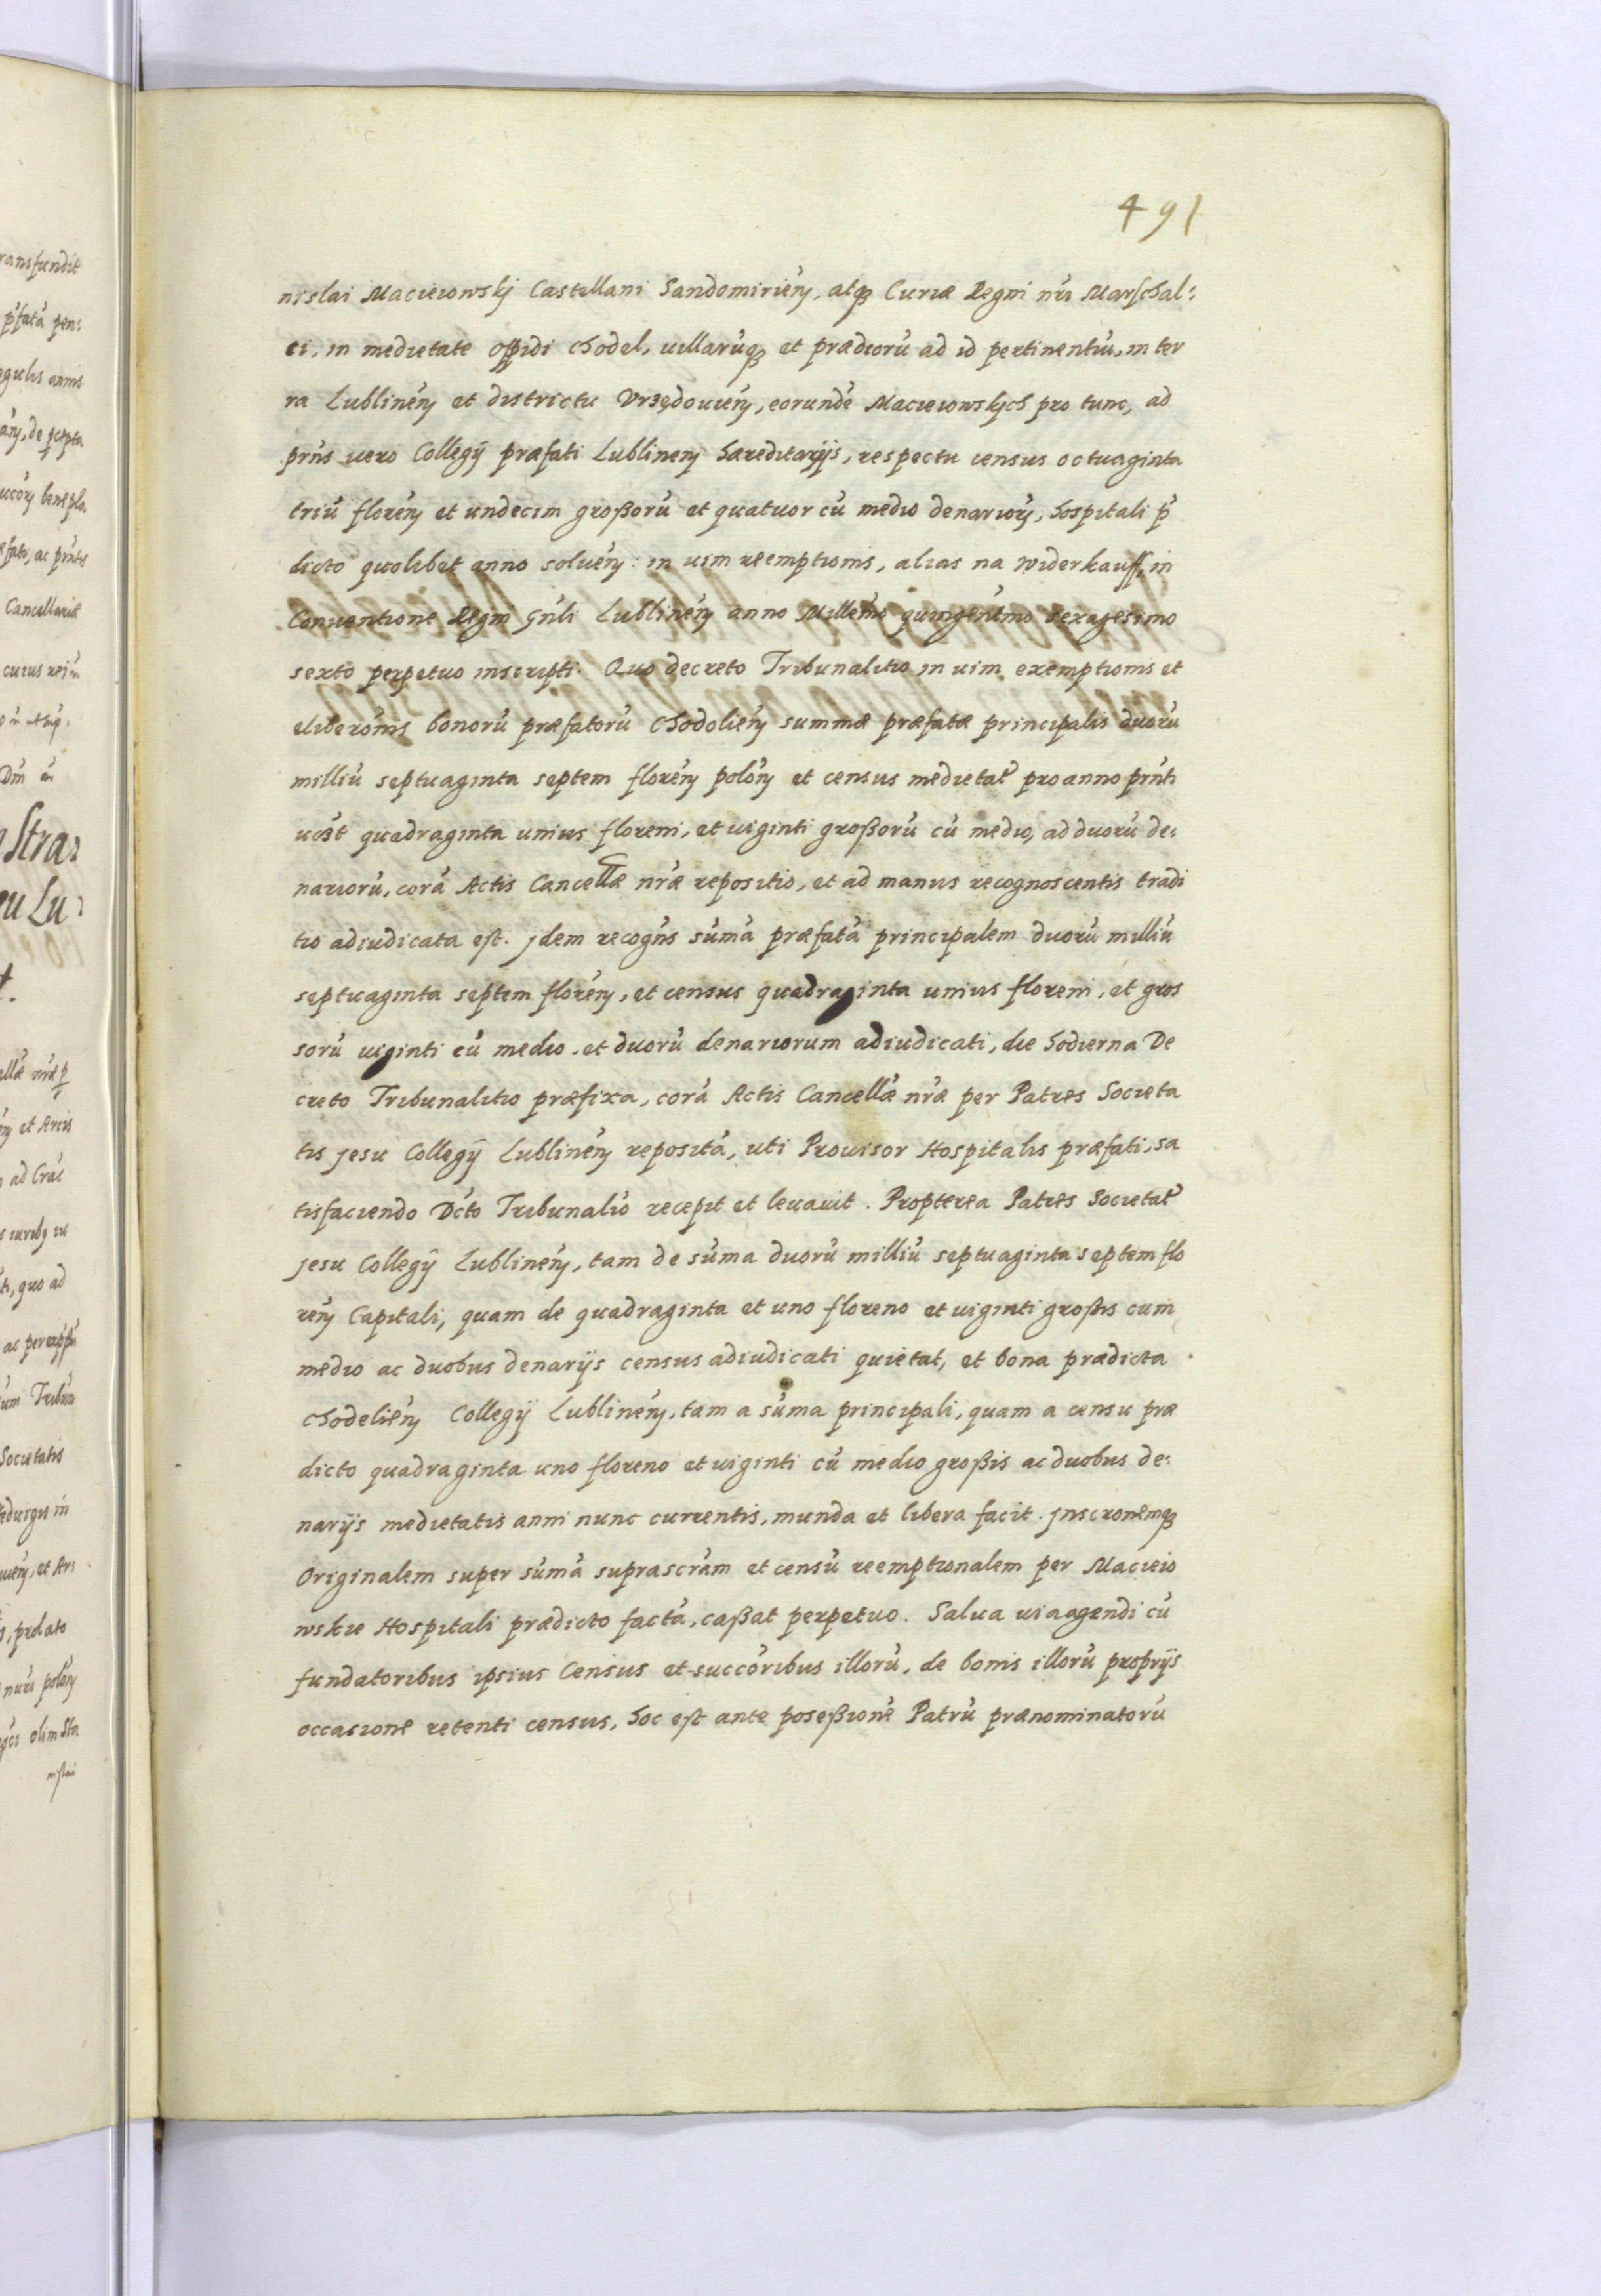 491
nislai Macieiowskj Castellani Sandomirień, atq3 Curiæ Regni nr̃i Marschal:
ci, in medietate oppidi Chodel, uillarũq3 et prædiorũ ad id pertinentiũ, in ter
ra Lublineń et districtu Vrzędouień, eorundẽ Macieiowskjch pro tunc, ad
prñs uero Collegÿ præfati Lublineń hæreditarijs, respectu census octuaginta
triũ floreń et undecim großorũ et quatuor cũ medio denarioŕ, hospitali p̃
dicto quolibet anno solueń: in uim reemptionis, alias na widerkauff, in
Conuentione Regni gñli Lublineń anno Millẽmo quingentmõ sexagesimo
sexto perpetuo inscripti. Quo decreto Tribunalitio in uim exemptionis et
eliberõnis bonorũ præfatorũ Chodolień summæ præfatæ principalis duorũ
milliũ septuaginta septem floreń poloń et census medietat̃ pro anno prñti
uc3t quadraginta unius floreni, et uiginti großorũ cũ medio, ac duorũ de:
nariorũ, corã Actis Cancellæ nr̃æ repositio, et ad manus recognoscentis tradi
tio adiudicata est. jdem recogñs sũmã præfatã principalem duorũ milliũ
septuaginta septem floreń, et census quadraginta unius floreni, et gros
sorũ uiginti cũ medio, et duorũ denariorum adiudicati, die hodierna De
creto Tribunalitio præfixa, corã Actis Cancellæ nr̃æ per Patres Societa
tis jesu Collegÿ Lublineń repositã, uti Prouisor Hospitalis præfati, sa
tisfaciendo Dc̃to Tribunaliõ recepit et leuauit. Propterea Patres Societat̃
jesu Collegÿ Lublineń, tam de sũma duorũ milliũ septuaginta septem flo
reń Capitali, quam de quadraginta et uno floreno et uiginti großis cum
medio ac duobus denarijs census adiudicati quietat, et bona prædicta
Chodelień Collegij Lublineń, tam a sũma principali, quam a censu præ
dicto quadraginta uno floreno et uiginti cũ medio großis ac duobus de:
narijs medietatis anni nunc currentis, munda et libera facit. jnscronẽmq3
Originalem super sũmã suprascrãm et censũ reemptionalem per Macieio
wskie Hospitali prædicto factã, caßat perpetuo. Salua uia agendi cũ
fundatoribus ipsius Census et succõribus illorũ, de bonis illorũ proprijs
occasione retenti census, hoc est ante poseßionẽ Patrũ prænominatorũ